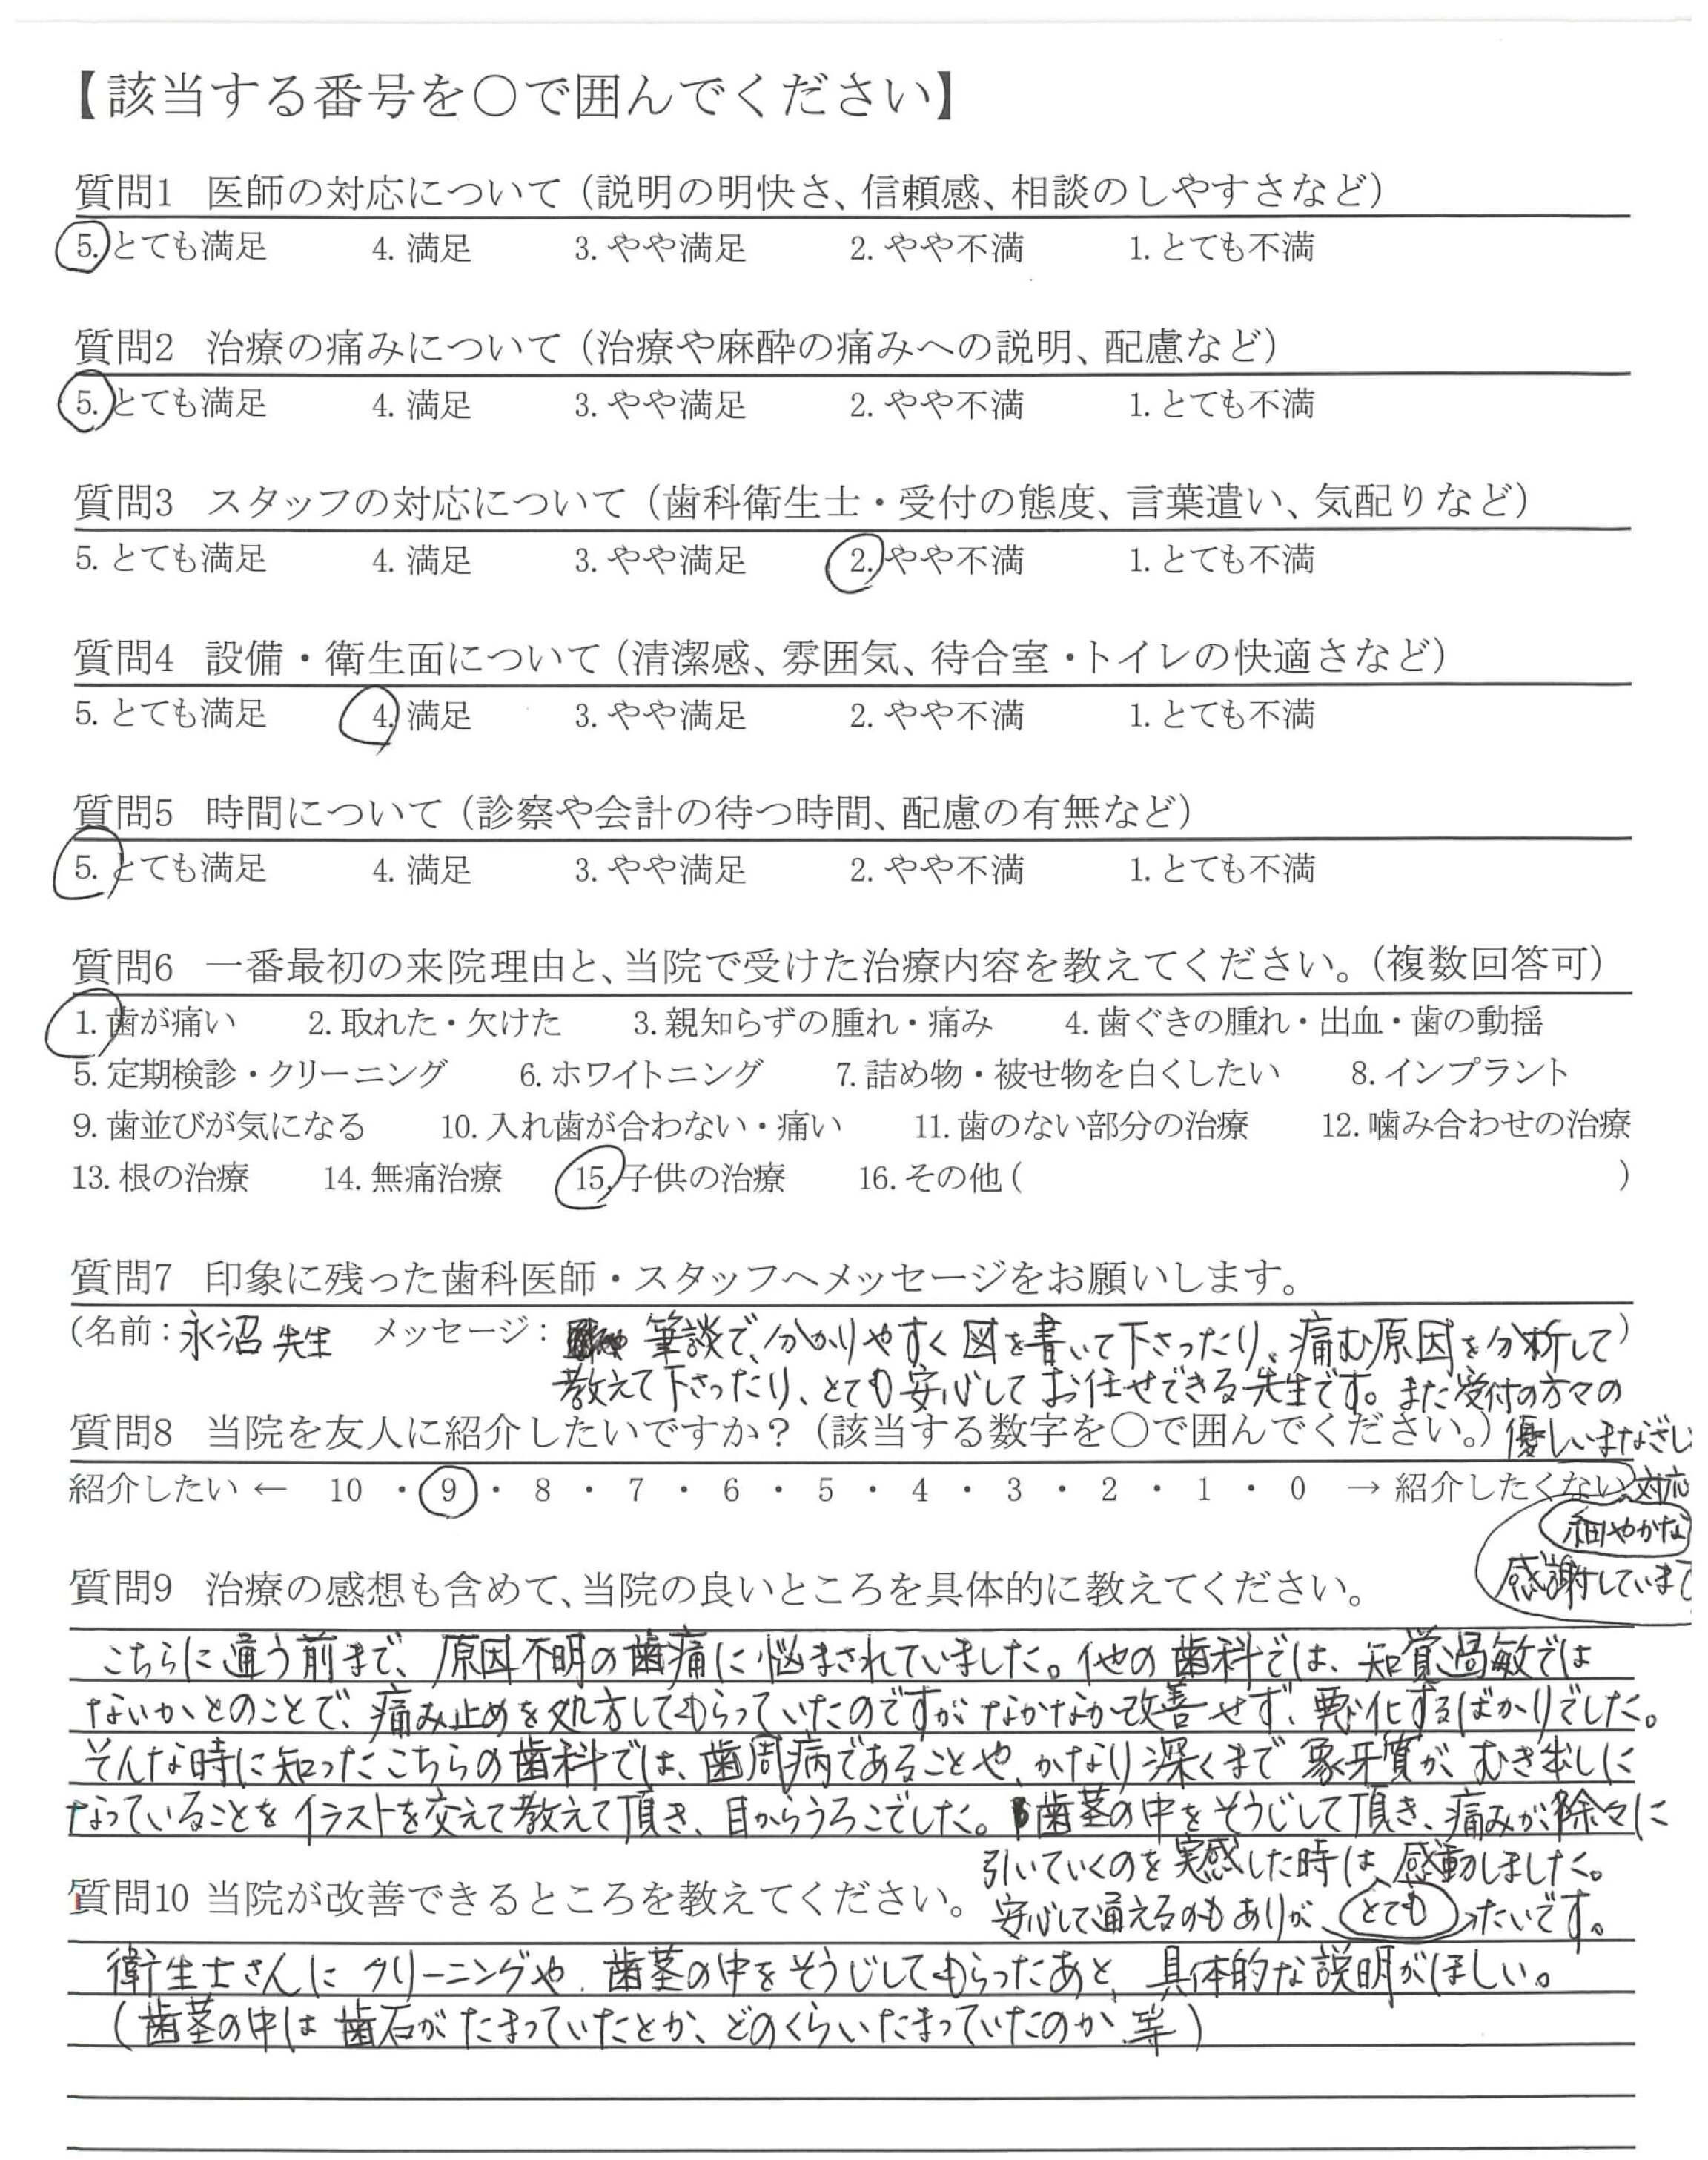 【該当する番号を○で囲んでください】
質問1 医師の対応について（説明の明快さ、信頼感、相談のしやすさなど）
5. とても満足 4. 満足 3. やや満足 2. やや不満 1. とても不満
質問2 治療の痛みについて（治療や麻酔の痛みへの説明、配慮など）
5. とても満足 4. 満足 3. やや満足 2. やや不満 1. とても不満
質問3 スタッフの対応について（歯科衛生士・受付の態度、言葉遣い、気配りなど）
5. とても満足 4. 満足 3. やや満足 2. やや不満 1. とても不満
質問4 設備・衛生面について（清潔感、雰囲気、待合室・トイレの快適さなど）
5. とても満足 4. 満足 3. やや満足 2. やや不満 1. とても不満
質問5 時間について（診察や会計の待つ時間、配慮の有無など）
5. とても満足 4. 満足 3. やや満足 2. やや不満 1. とても不満
質問6 一番最初の来院理由と、当院で受けた治療内容を教えてください。（複数回答可）
1. 歯が痛い 2. 取れた・欠けた 3. 親知らずの腫れ・痛み 4. 歯ぐきの腫れ・出血・歯の動揺
5. 定期検診・クリーニング 6. ホワイトニング 7. 詰め物・被せ物を白くしたい 8. インプラント
9. 歯並びが気になる 10. 入れ歯が合わない・痛い 11. 歯のない部分の治療 12. 噛み合わせの治療
13. 根の治療 14. 無痛治療 15. 子供の治療 16. その他（ ）
質問7 印象に残った歯科医師・スタッフへメッセージをお願いします。
（名前：永沼先生 メッセージ：筆談で、分かりやすく図を書いて下さったり、痛む原因を分析して）
教えて下さったり、とても安心してお任せできる先生です。また受付の方々の
質問8 当院を友人に紹介したいですか？（該当する数字を○で囲んでください。）優しいまなざし
紹介したい ← 10 ・ 9 ・ 8 ・ 7 ・ 6 ・ 5 ・ 4 ・ 3 ・ 2 ・ 1 ・ 0 → 紹介したくない 対応
細やかな
感謝しています
質問9 治療の感想も含めて、当院の良いところを具体的に教えてください。
こちらに通う前まで、原因不明の歯痛に悩まされていました。他の歯科では、知覚過敏では
ないかとのことで、痛み止めを処方してもらっていたのですがなかなか改善せず、悪化するばかりでした。
そんな時に知ったこちらの歯科では、歯周病であることや、かなり深くまで象牙質がむき出しに
なっていることをイラストを交えて教えて頂き、目からうろこでした。歯茎の中をそうじして頂き、痛みが徐々に
引いていくのを実感した時は感動しました。
質問10 当院が改善できるところを教えてください。
安心して通えるのもありが、とても ったいです。
衛生士さんにクリーニングや、歯茎の中をそうじしてもらったあと、具体的な説明がほしい。
（歯茎の中は歯石がたまっていたとか、どのくらいたまっていたのか、等）